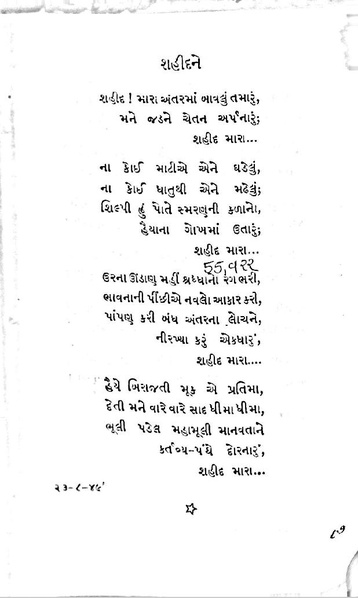 શહીદને
શહીદ ! મારા અંતરમાં બાવલું તમારું,
મને જડને ચેતન અર્પનારું;
શહીદ મારા...
ના કોઈ માટીએ એને ઘડેલું,
ના કોઈ ધાતુથી એને મઢેલું;
શિલ્પી હું પોતે સ્મરણની કળાનો,
હૈયાના ગોખમાં ઉતારું;
શહીદ મારા...
૬૬,૧૨૨
ઉરના ઊંડાણ મહીં શ્રધ્ધાના રંગ ભરી,
ભાવનાની પીંછીએ નવલો આકાર કરી,
પાંપણ કરી બંધ અંતરના લોચને,
નીરખ્યા કરું એકધારું,
શહીદ મારા....
હૈયે બિરાજતી મૂક એ પ્રતિમા,
દેતી મને વારે વારે સાદ ધીમા ધીમા,
ભૂલી પડેલ મહામૂલી માનવતાને
કર્તવ્ય-પંથે દોરનારું,
શહીદ મારા...
૨૩-૮-૪૯'